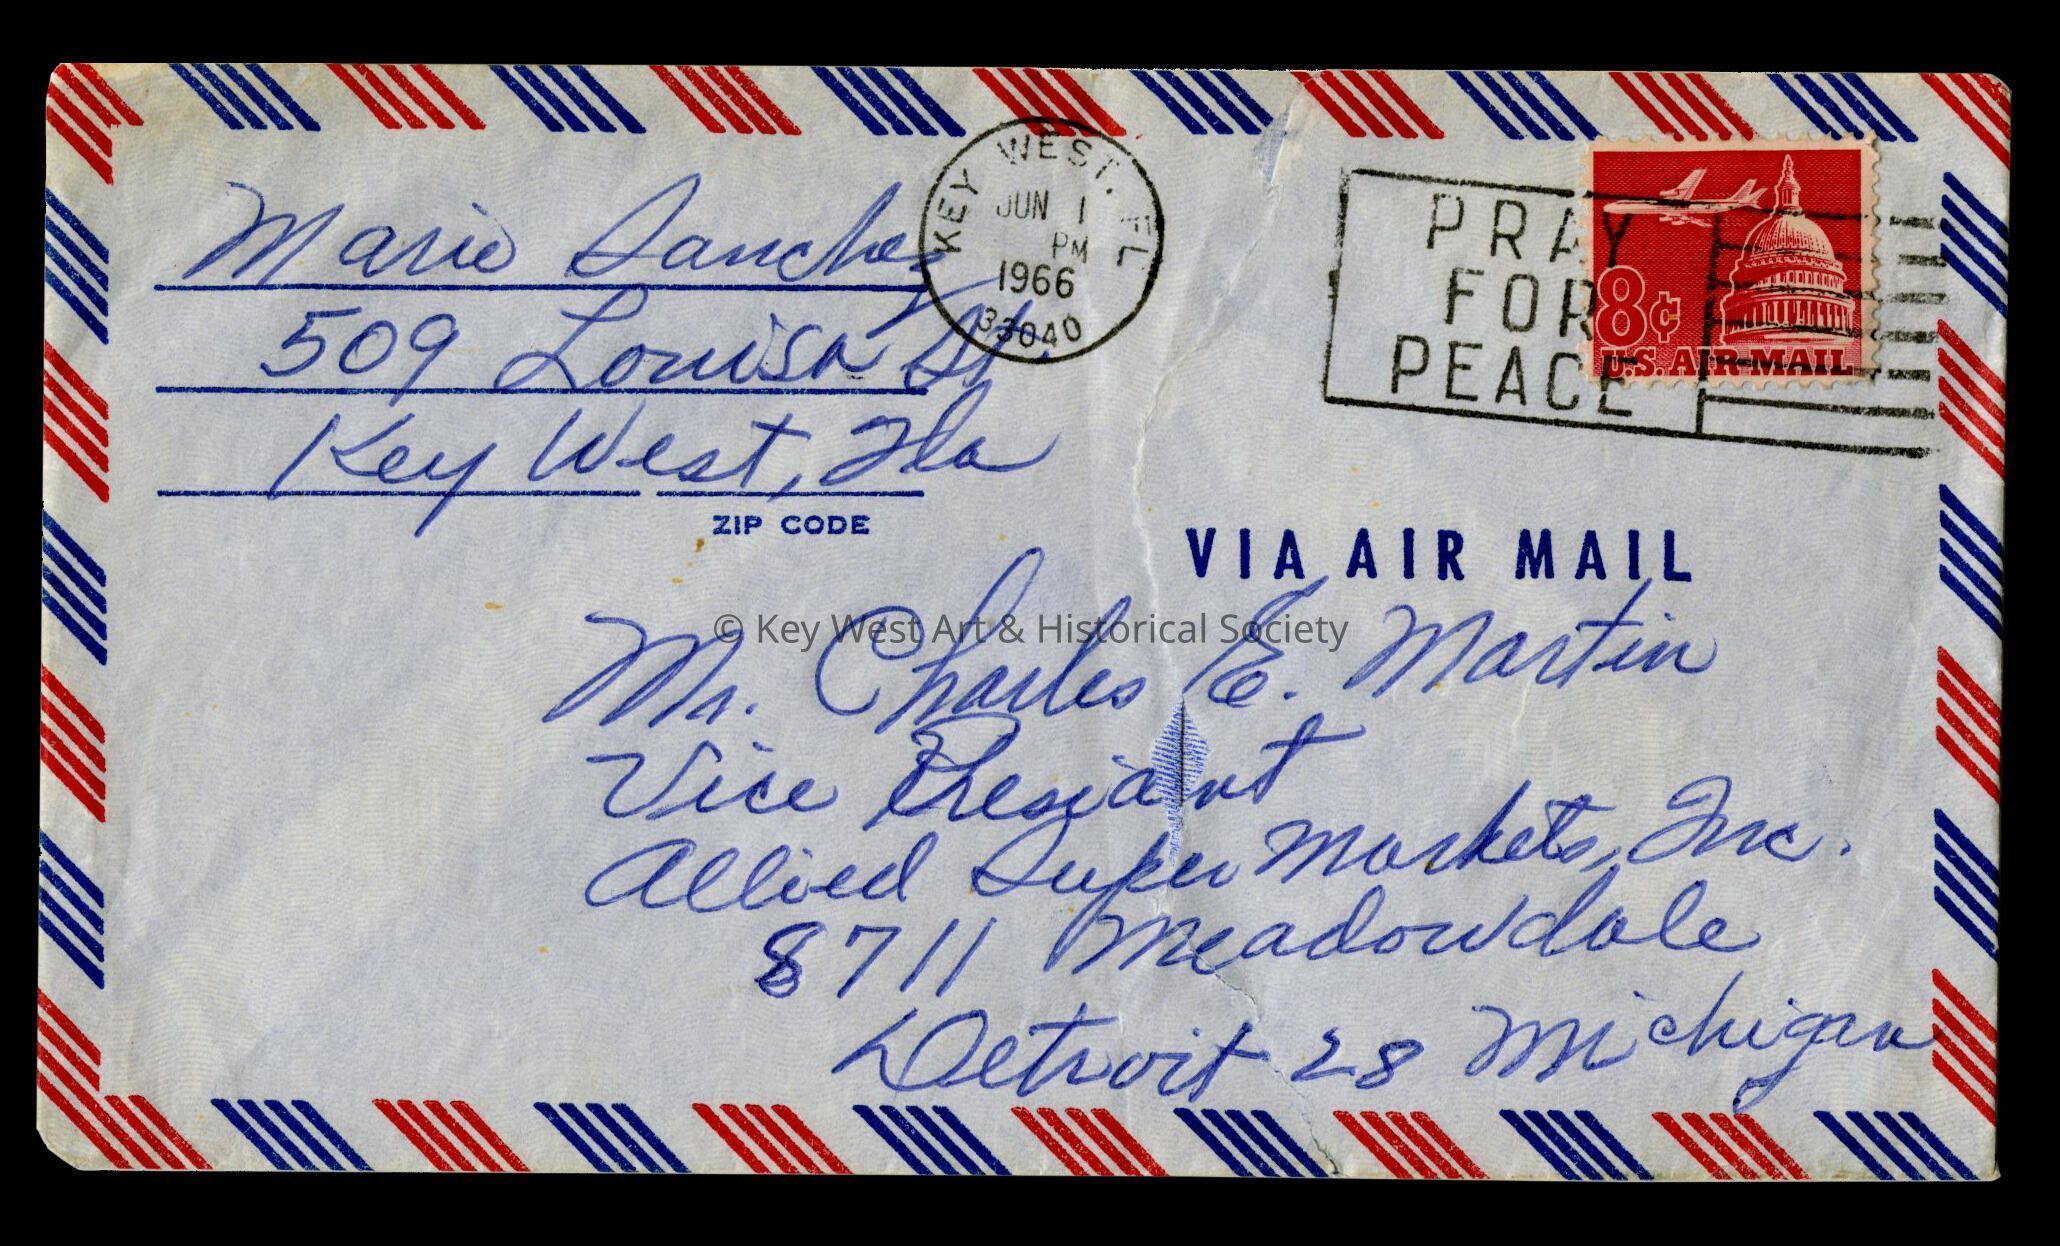 Marie Sanchez
509 Louisa St
Key West, Fla
ZIP CODE
KEY WEST, FL
JUN 1
PM
1966
33040
PRAY
FOR
PEACE
8¢
U.S. AIR MAIL
VIA AIR MAIL
© Key West Art & Historical Society
Mr. Charles E. Martin
Vice President
Allied Super Markets, Inc.
8711 Meadowdale
Detroit 28 Michigan